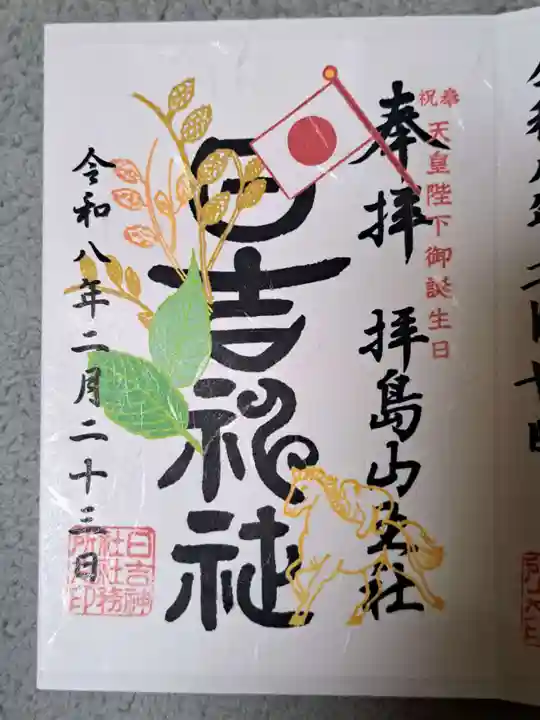 奉祝
天皇陛下御誕生日
奉拝 拝島山王社
日吉神社
令和八年二月二十三日
日吉神
社社務
所印